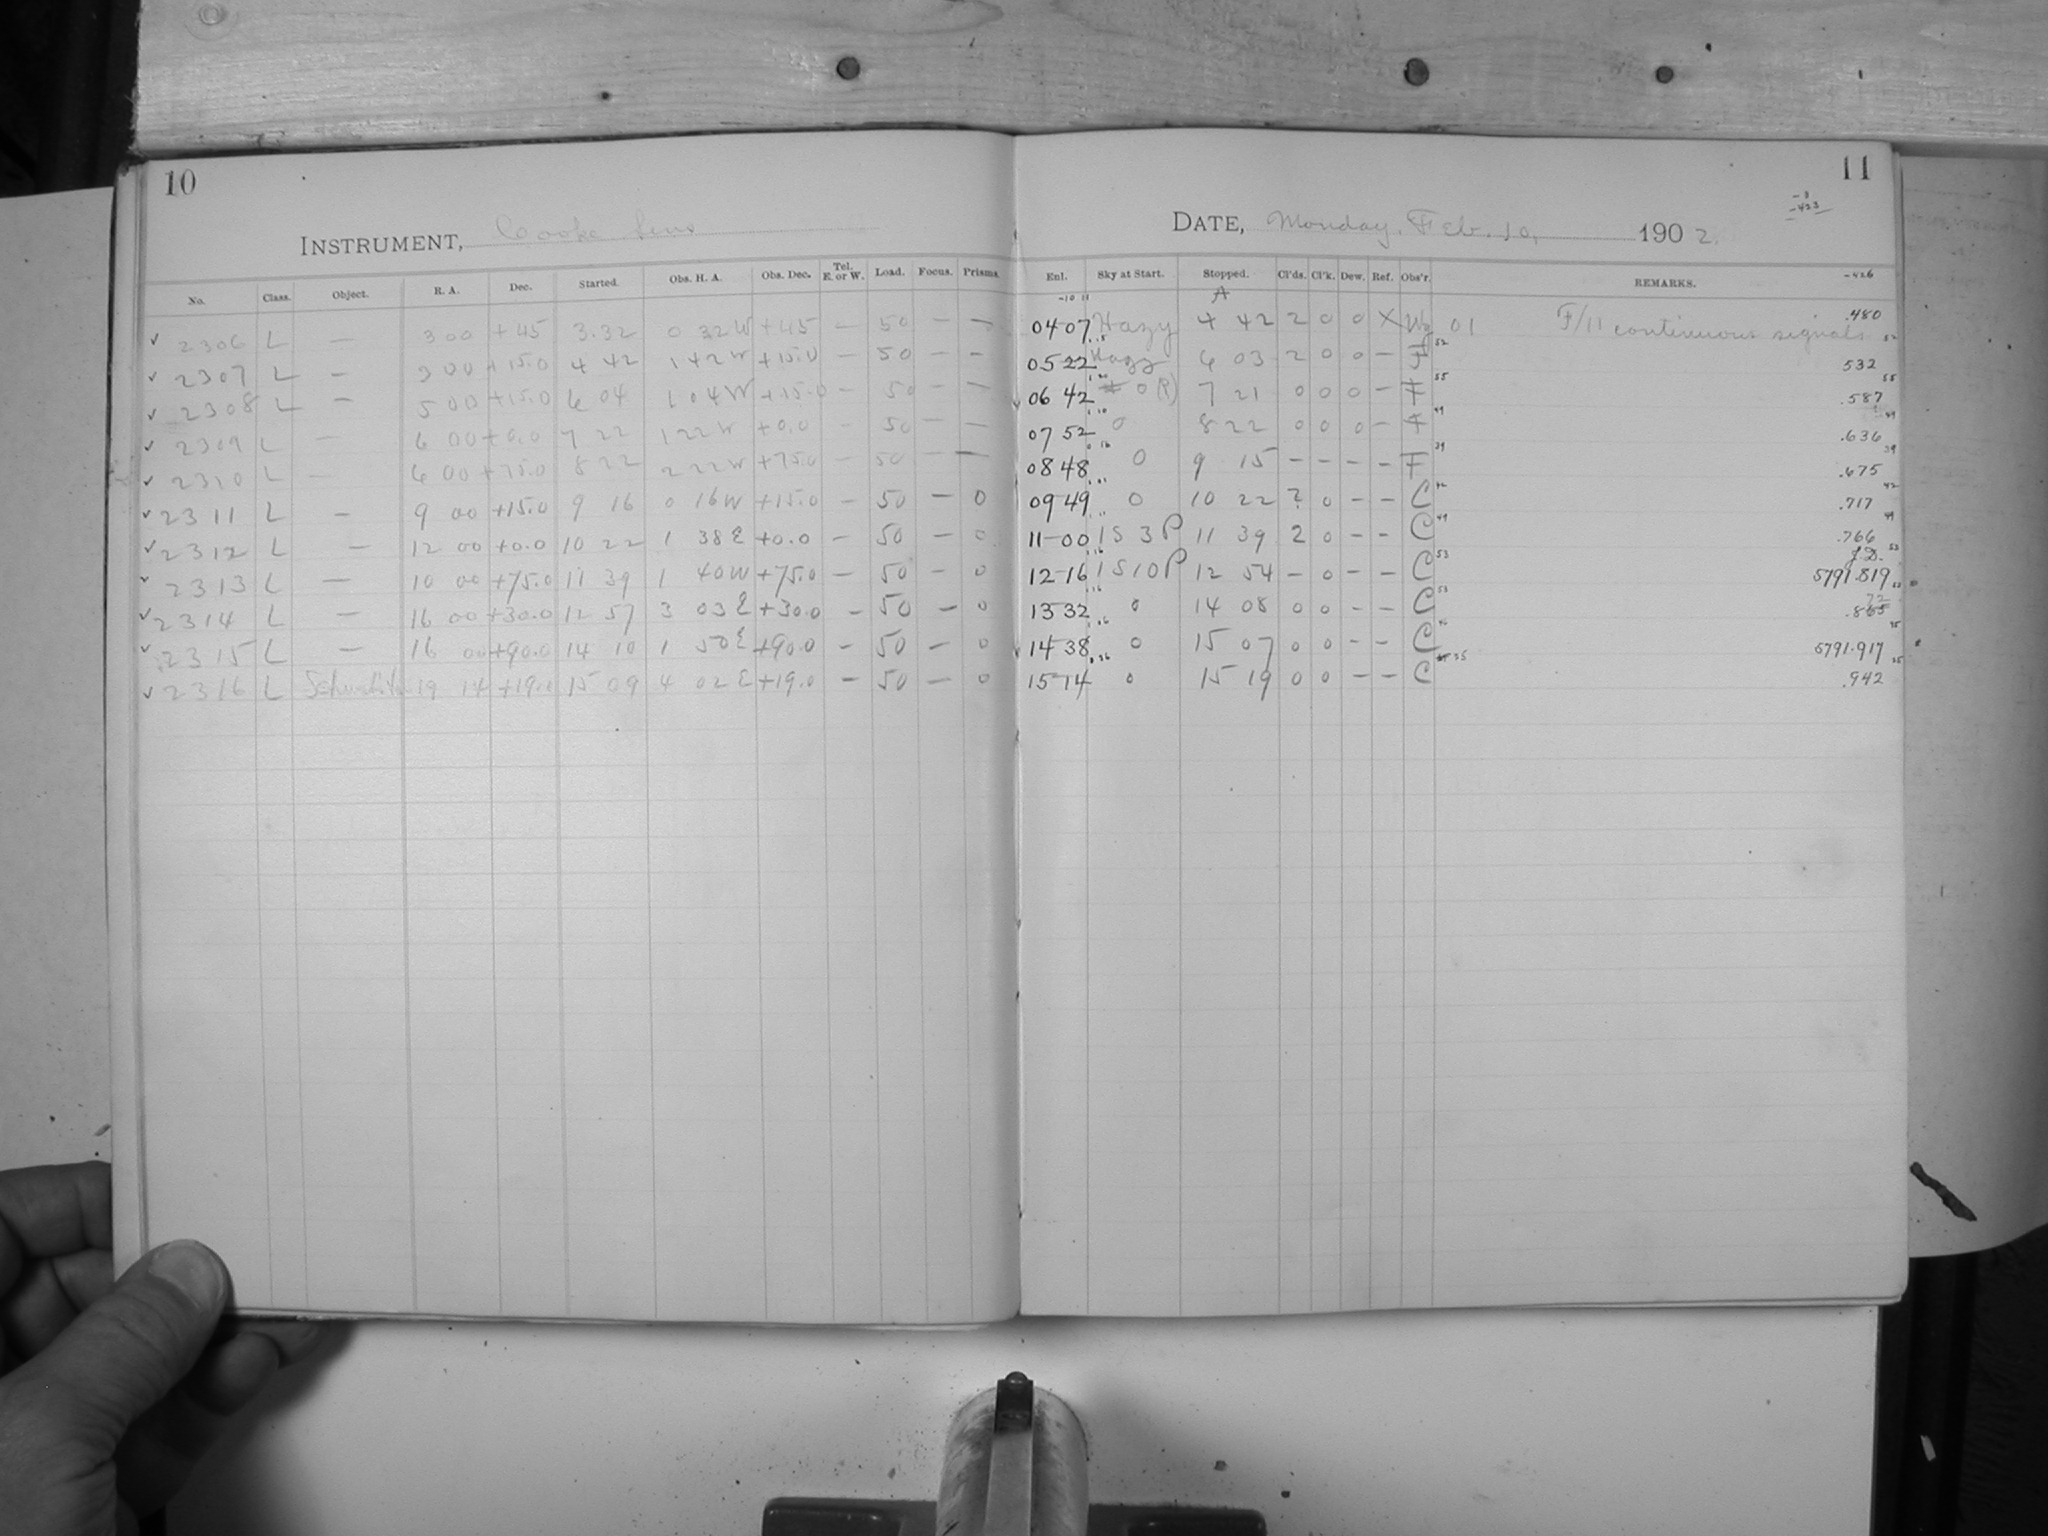 10
INSTRUMENT, Cooke lens
No. Class. Object. R. A. Dec. Started. Obs. H. A. Obs. Dec. Tel. E. or W. Load. Focus. Prisms.
✓ 2306 L — 3 00 +45 3.32 0 32W +45 — 50 — —
✓ 2307 L — 3 00 +15.0 4 42 1 42W +15.0 — 50 — —
✓ 2308 L — 5 00 +15.0 6 04 1 04W +15.0 — 50 — —
✓ 2309 L — 6 00 +0.0 7 22 1 22W +0.0 — 50 — —
✓ 2310 L — 6 00 +75.0 8 22 2 22W +75.0 — 50 — —
✓ 2311 L — 9 00 +15.0 9 16 0 16W +15.0 — 50 — 0
✓ 2312 L — 12 00 +0.0 10 22 1 38E +0.0 — 50 — 0
✓ 2313 L — 10 00 +75.0 11 39 1 40W +75.0 — 50 — 0
✓ 2314 L — 16 00 +30.0 12 57 3 03E +30.0 — 50 — 0
✓ 2315 L — 16 00 +90.0 14 10 1 50E +90.0 — 50 — 0
✓ 2316 L 19 14 +19.0 15 09 4 02E +19.0 — 50 — 0
11
-423
DATE, Monday, Feb. 10, 1902.
Enl. Sky at Start. Stopped. Cl'ds. Cl'k. Dew. Ref. Obs'r. REMARKS. -426
A
04 07 Hazy 4 42 2 0 0 X 01 F/11 continuous signals .480
05 22 Hazy 6 03 2 0 0 — F 52 532
06 42 0 (P) 7 21 0 0 0 — F 55 .587
07 52 0 8 22 0 0 0 — F 49 .636
08 48 0 9 15 — — — — F 39 .675
09 49 0 10 22 ? 0 — — C 42 .717
11-00 1S 3P 11 39 2 0 — — C 49 .766
J.D.
12-16 1S10P 12 54 — 0 — — C 53 5791.819
13 32 0 14 08 0 0 — — C 53 .865 72
14 38 0 15 07 0 0 — — C 5791.917
15-14 0 15 19 0 0 — — C .942